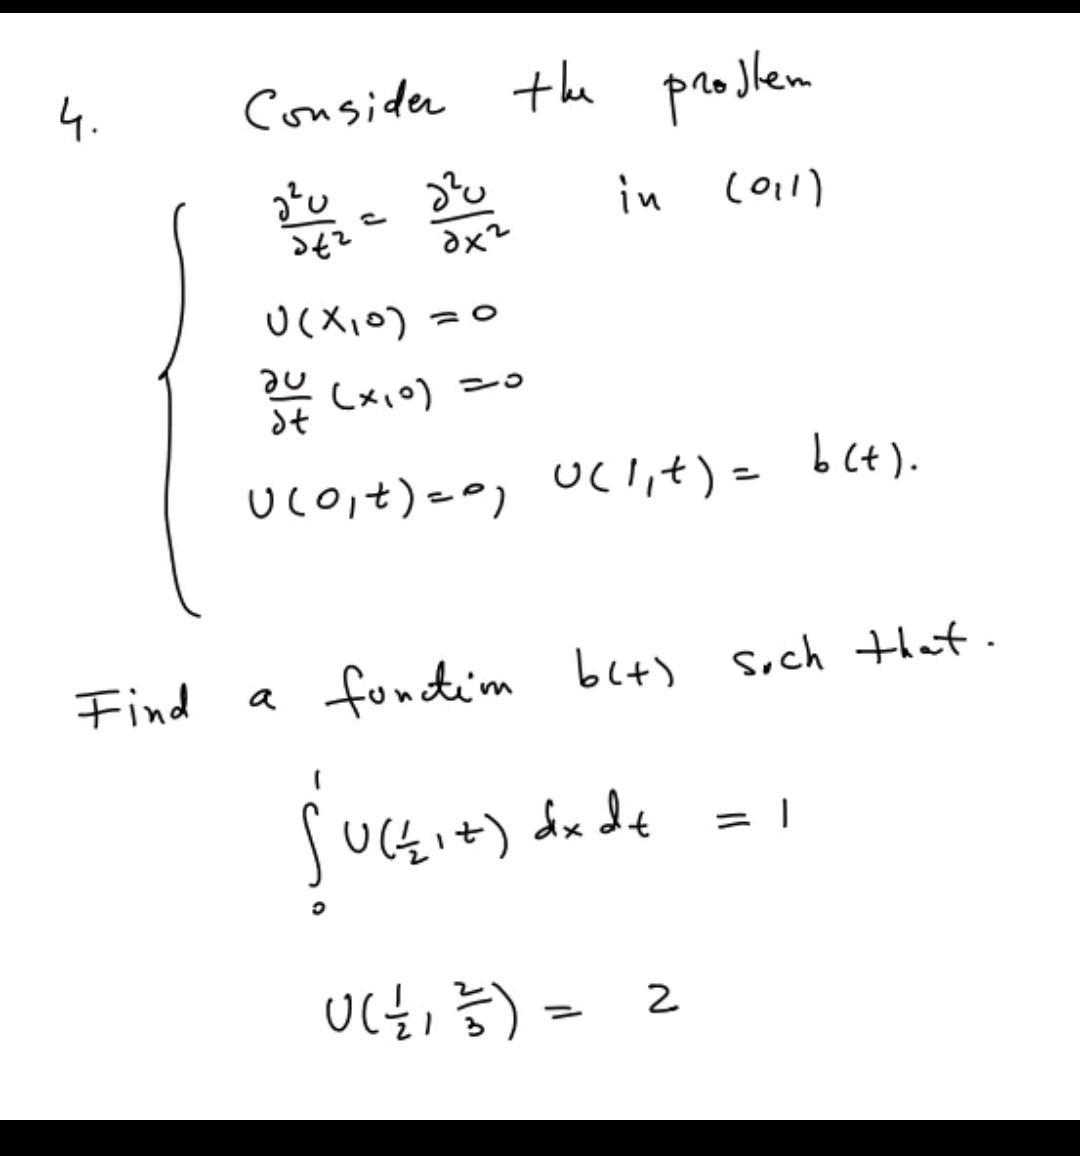 4. Consider the problem
∂²U/∂t² = ∂²U/∂x² in (0,1)
U(x,0) = 0
∂U/∂t (x,0) = 0
U(0,t) = 0, U(1,t) = b(t).
Find a function b(t) such that.
∫₀¹ U(1/2, t) dx dt = 1
U(1/2, 2/3) = 2